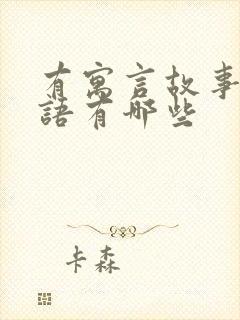 有寓言故事
語有哪些
卡森